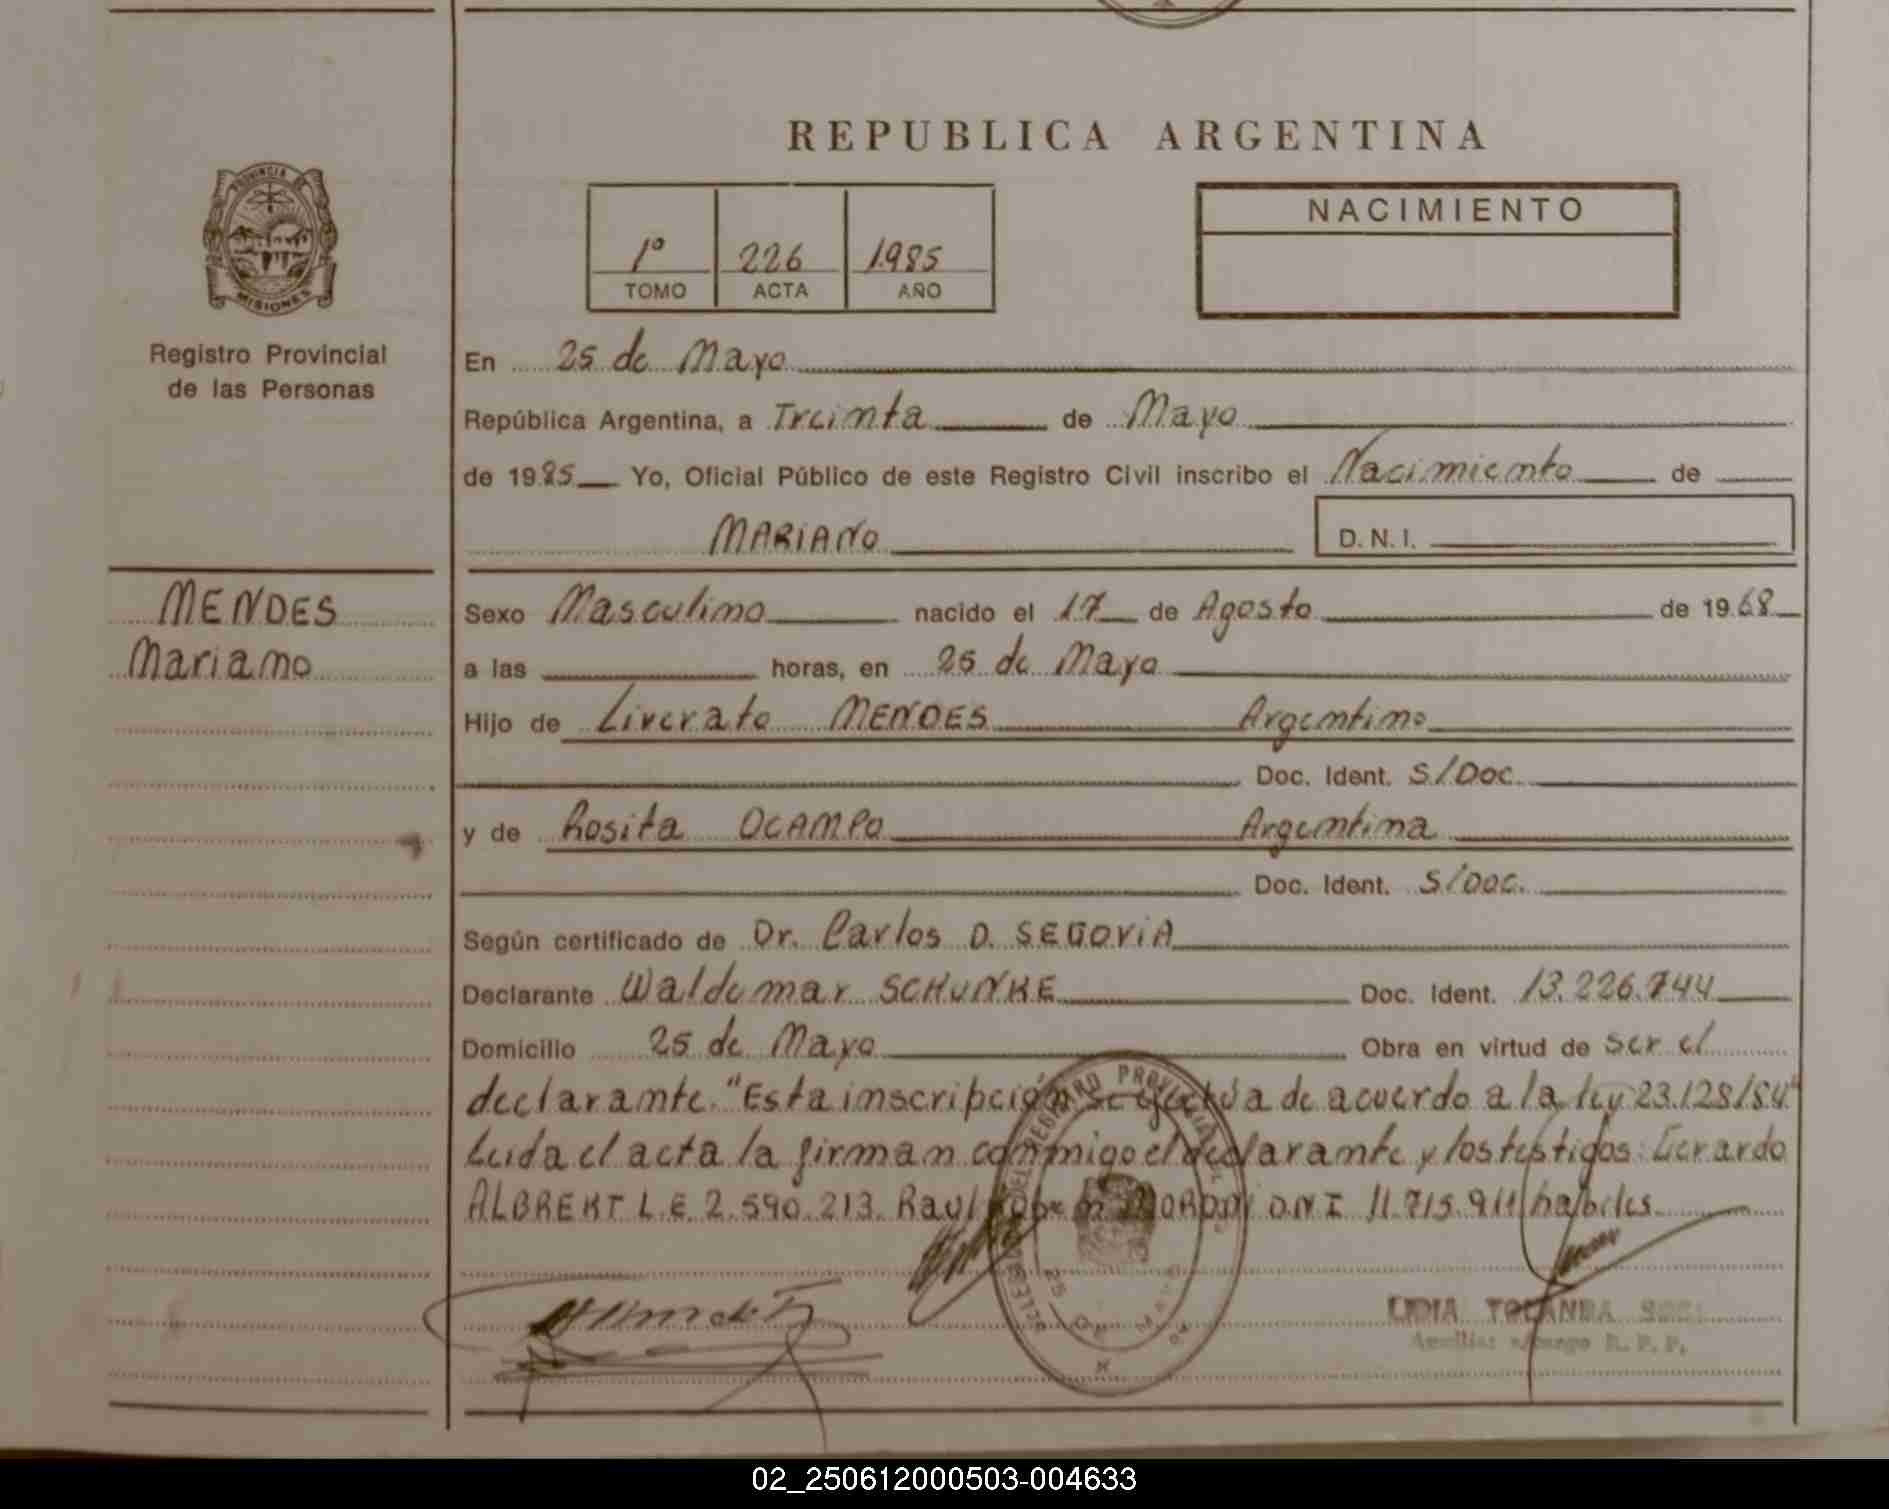 REPUBLICA ARGENTINA
PROVINCIA DE
MISIONES
Registro Provincial
de las Personas
1º 226 1.985
TOMO ACTA AÑO
NACIMIENTO
En 25 de Mayo
República Argentina, a Treinta de Mayo
de 1985 Yo, Oficial Público de este Registro Civil inscribo el Nacimiento de
MARIANO D.N.I.
MENDES
Mariano
Sexo Masculino nacido el 17 de Agosto de 1968
a las horas, en 25 de Mayo
Hijo de Liverato MENDES Argentino
Doc. Ident. S/Doc.
y de Rosita OCAMPO Argentina
Doc. Ident. S/DOC.
Según certificado de Dr. Carlos D. SEGOVIA
Declarante Waldemar SCHUNKE Doc. Ident. 13.226.744
Domicilio 25 de Mayo Obra en virtud de ser el
declarante. "Esta inscripción se efectúa de acuerdo a la ley 23.128/84"
Leida el acta la firman conmigo el declarante y los testigos: Gerardo
ALBREKT L.E. 2.590.213. Raul D.N.I 11.715.911 habiles
REGISTRO PROVINCIAL
25 DE MAYO
LIDIA YOLANDA
R. P. P.
02_250612000503-004633